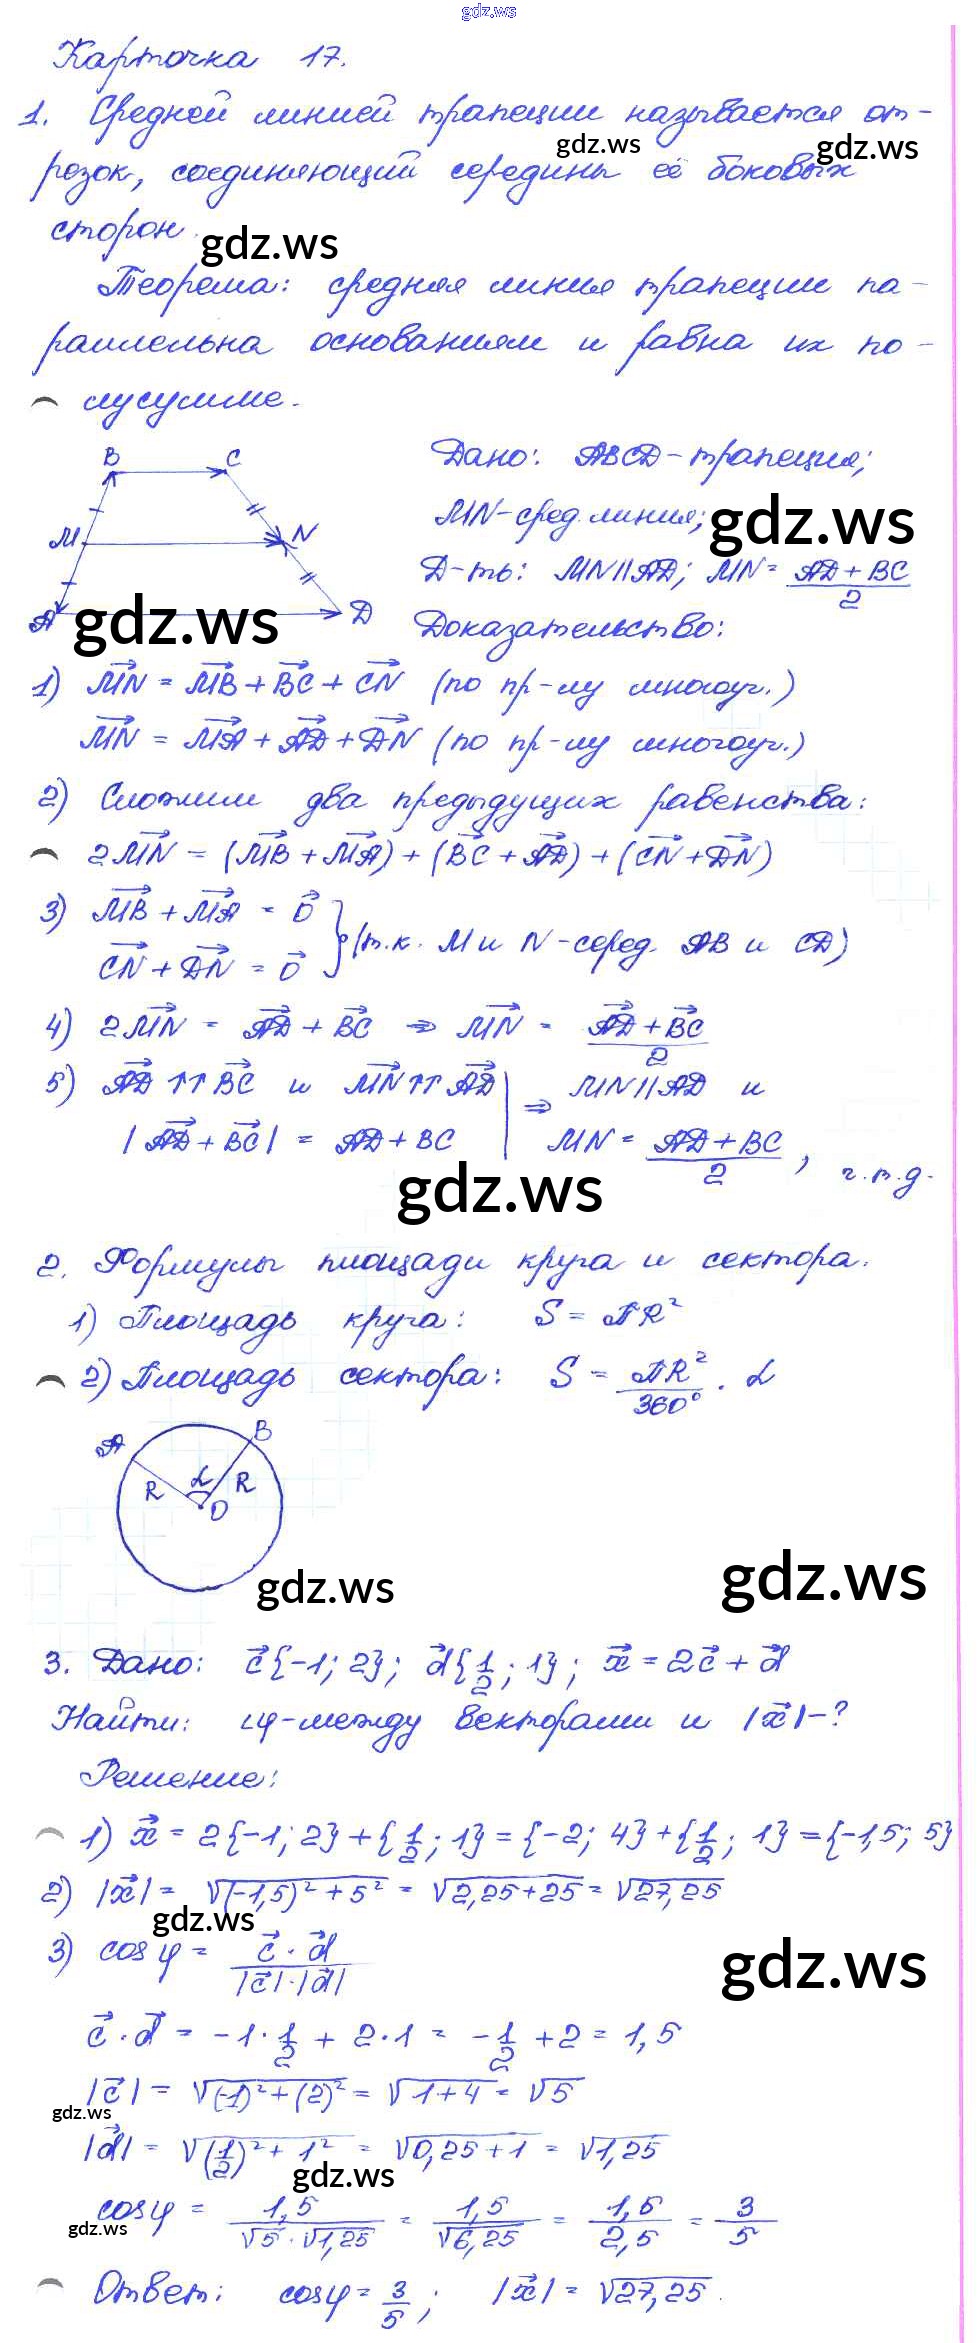 gdz.ws
Карточка 17.
1. Средней линией трапеции называется от-
gdz.ws
gdz.ws
резок, соединяющий середины её боковых
сторон.
gdz.ws
Теорема: средняя линия трапеции па-
раллельна основаниям и равна их по-
лусумме.
B C
M N
A D
Дано: ABCD-трапеция;
MN-сред. линия;
gdz.ws
Д-ть: MN||AD; MN = (AD + BC)/2
gdz.ws
Доказательство:
1) MN⃗ = MB⃗ + BC⃗ + CN⃗ (по пр-лу многоуг.)
MN⃗ = MA⃗ + AD⃗ + DN⃗ (по пр-лу многоуг.)
2) Сложим два предыдущих равенства:
2MN⃗ = (MB⃗ + MA⃗) + (BC⃗ + AD⃗) + (CN⃗ + DN⃗)
3) MB⃗ + MA⃗ = 0⃗
CN⃗ + DN⃗ = 0⃗ } (т.к. M и N-серед. AB и CD)
4) 2MN⃗ = AD⃗ + BC⃗ ⇒ MN⃗ = (AD⃗ + BC⃗)/2
5) AD⃗ ↑↑ BC⃗ и MN⃗ ↑↑ AD⃗ | ⇒ MN||AD и
|AD⃗ + BC⃗| = AD + BC | MN = (AD + BC)/2, ч.т.д.
gdz.ws
2. Формулы площади круга и сектора.
1) Площадь круга: S = ПR²
2) Площадь сектора: S = ПR²/360° · α
A B
R α R
O
gdz.ws
gdz.ws
3. Дано: c⃗{-1; 2}; d⃗{1/2; 1}; x⃗ = 2c⃗ + d⃗
Найти: ∠φ-между векторами и |x⃗|-?
Решение:
1) x⃗ = 2{-1; 2} + {1/2; 1} = {-2; 4} + {1/2; 1} = {-1,5; 5}
2) |x⃗| = √((-1,5)² + 5²) = √(2,25 + 25) = √27,25
gdz.ws
3) cos φ = c⃗ · d⃗/|c⃗|·|d⃗|
gdz.ws
c⃗ · d⃗ = -1 · 1/2 + 2 · 1 = -1/2 + 2 = 1,5
|c⃗| = √((-1)² + (2)²) = √(1 + 4) = √5
gdz.ws
|d⃗| = √((1/2)² + 1²) = √(0,25 + 1) = √1,25
gdz.ws
cos φ = 1,5/(√5 · √1,25) = 1,5/√6,25 = 1,5/2,5 = 3/5
gdz.ws
Ответ: cos φ = 3/5; |x⃗| = √27,25.